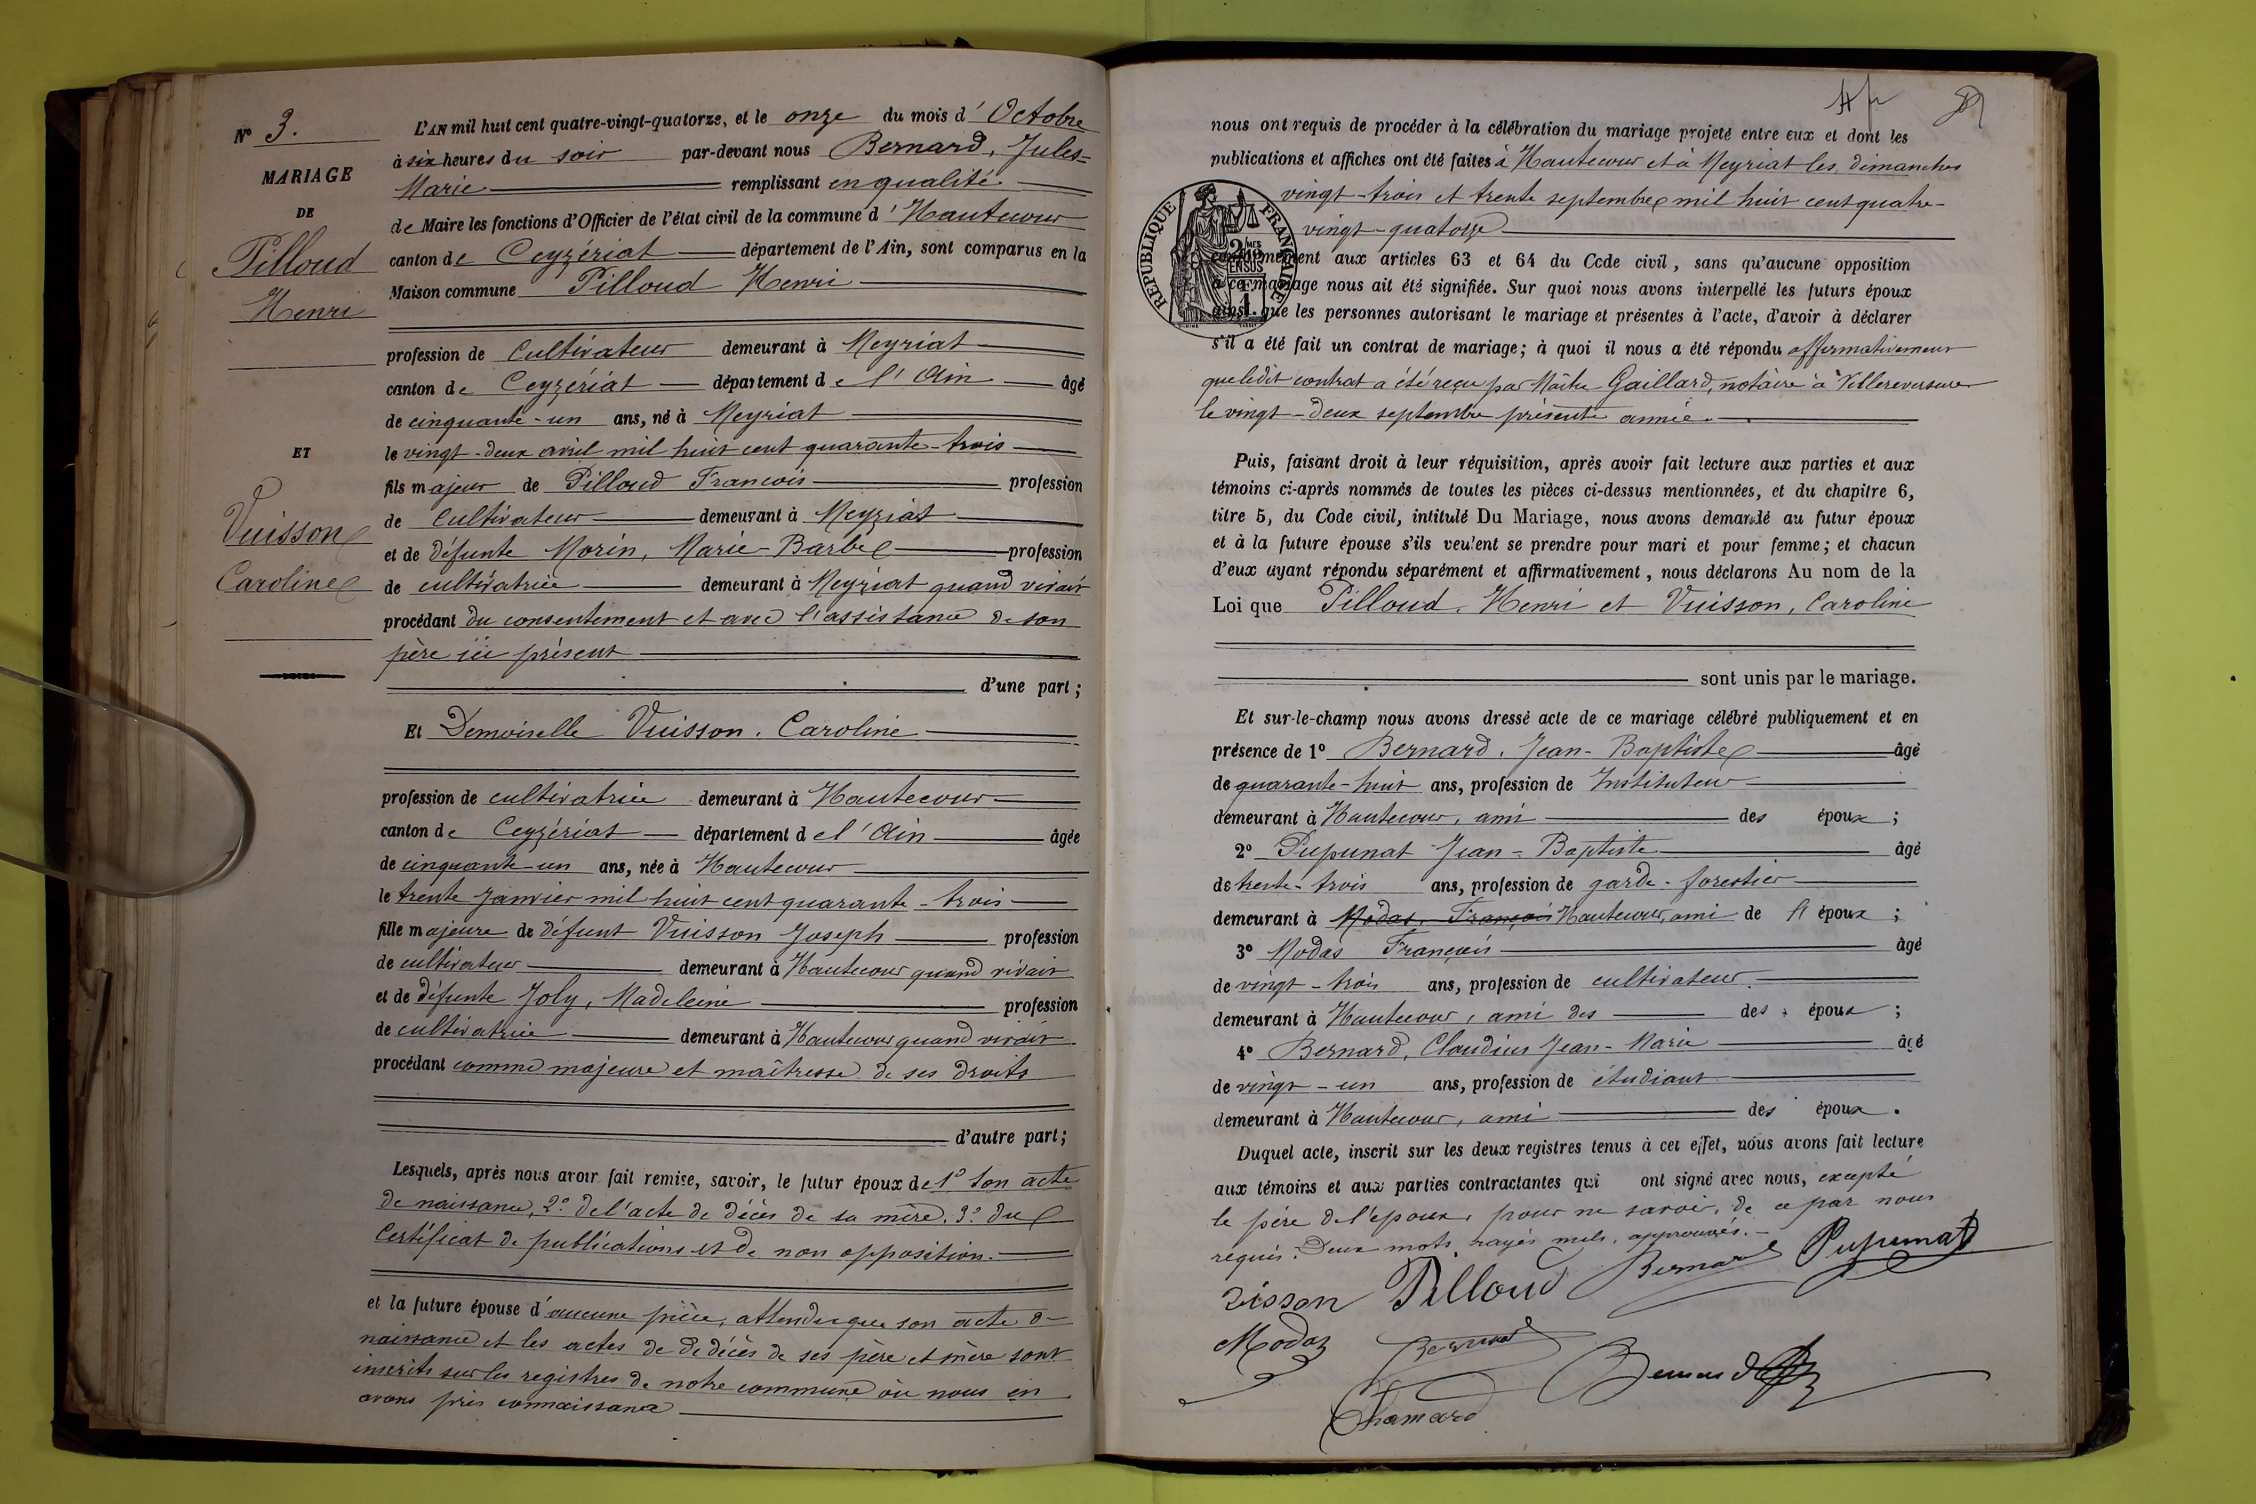 N° 3.
MARIAGE
DE
Pilloud
Henri
ET
Vuisson
Caroline
L'AN mil huit cent quatre-vingt-quatorze, et le onze du mois d'Octobre
à six heures du soir par-devant nous Bernard, Jules-
Marie remplissant en qualité
de Maire les fonctions d'Officier de l'état civil de la commune d'Hautecour
canton de Ceyzériat département de l'Ain, sont comparus en la
Maison commune Pilloud Henri
profession de Cultivateur demeurant à Meyriat
canton de Ceyzériat département de l'Ain âgé
de cinquante-un ans, né à Meyriat
le vingt-deux avril mil huit cent quarante-trois
fils majeur de Pilloud Francois profession
de Cultivateur demeurant à Meyriat
et de défunte Morin, Marie-Barbe profession
de cultivatrice demeurant à Meyriat quand vivait
procédant du consentement et avec l'assistance de son
père ici présent
d'une part;
Et Demoiselle Vuisson. Caroline
profession de cultivatrice demeurant à Hautecour
canton de Ceyzériat département de l'Ain âgée
de cinquante-un ans, née à Hautecour
le trente Janvier mil huit cent quarante-trois
fille majeure de défunt Vuisson Joseph profession
de cultivateur demeurant à Hautecour quand vivait
et de défunte Joly, Madeleine profession
de cultivatrice demeurant à Hautecour quand vivait
procédant comme majeure et maîtresse de ses droits
d'autre part;
Lesquels, après nous avoir fait remise, savoir, le futur époux de 1° Son acte
de naissance, 2° de l'acte de décès de sa mère, 3° du
Certificat de publications et de non opposition.
et la future épouse d'aucune pièce, attendu que son acte de
naissance et les actes de de décès de ses père et mère sont
inscrits sur les registres de notre commune où nous en
avons pris connaissance
nous ont requis de procéder à la célébration du mariage projeté entre eux et dont les
publications et affiches ont été faites à Hautecour et à Meyriat les dimanches
vingt-trois et trente septembre mil huit cent quatre-
vingt-quatorze
RÉPUBLIQUE FRANÇAISE
conformément aux articles 63 et 64 du Code civil, sans qu'aucune opposition
à ce mariage nous ait été signifiée. Sur quoi nous avons interpellé les futurs époux
ainsi que les personnes autorisant le mariage et présentes à l'acte, d'avoir à déclarer
s'il a été fait un contrat de mariage; à quoi il nous a été répondu affirmativement
que ledit contrat a été reçu par Maître Gaillard, notaire à Villereversure
le vingt-deux septembre présente année.
Puis, faisant droit à leur réquisition, après avoir fait lecture aux parties et aux
témoins ci-après nommés de toutes les pièces ci-dessus mentionnées, et du chapitre 6,
titre 5, du Code civil, intitulé Du Mariage, nous avons demandé au futur époux
et à la future épouse s'ils veulent se prendre pour mari et pour femme; et chacun
d'eux ayant répondu séparément et affirmativement, nous déclarons Au nom de la
Loi que Pilloud, Henri et Vuisson, Caroline
sont unis par le mariage.
Et sur-le-champ nous avons dressé acte de ce mariage célébré publiquement et en
présence de 1° Bernard, Jean-Baptiste âgé
de quarante-huit ans, profession de Instituteur
demeurant à Hautecour, ami des époux;
2° Pupunat Jean-Baptiste âgé
de trente-trois ans, profession de garde-forestier
demeurant à Modas, François Hautecour, ami de l'époux;
3° Modas François âgé
de vingt-trois ans, profession de cultivateur
demeurant à Hautecour, ami des des époux;
4° Bernard, Claudius Jean-Marie âgé
de vingt-un ans, profession de étudiant
demeurant à Hautecour, ami des époux.
Duquel acte, inscrit sur les deux registres tenus à cet effet, nous avons fait lecture
aux témoins et aux parties contractantes qui ont signé avec nous, excepté
le père de l'époux, pour ne savoir, de ce par nous
requis. Deux mots rayés nuls, approuvés.
Pilloud Bernard Pupunat
Modas Bernard Bernard
Chamard